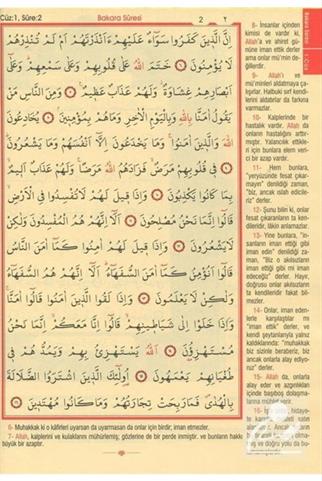 Cüz:1, Sûre:2
Bakara Sûresi
2
٢
اِنَّ الَّذٖينَ كَفَرُوا سَوَٓاءٌ عَلَيْهِمْ ءَاَنْذَرْتَهُمْ اَمْ لَمْ تُنْذِرْهُمْ
لَا يُؤْمِنُونَ ﴿٦﴾ خَتَمَ اللّٰهُ عَلٰى قُلُوبِهِمْ وَعَلٰى سَمْعِهِمْ وَعَلٰٓى
اَبْصَارِهِمْ غِشَاوَةٌ وَلَهُمْ عَذَابٌ عَظٖيمٌ ﴿٧﴾ وَمِنَ النَّاسِ مَنْ
يَقُولُ اٰمَنَّا بِاللّٰهِ وَبِالْيَوْمِ الْاٰخِرِ وَمَا هُمْ بِمُؤْمِنٖينَ ﴿٨﴾ يُخَادِعُونَ
اللّٰهَ وَالَّذٖينَ اٰمَنُوا وَمَا يَخْدَعُونَ اِلَّٓا اَنْفُسَهُمْ وَمَا يَشْعُرُونَ
﴿٩﴾ فٖى قُلُوبِهِمْ مَرَضٌ فَزَادَهُمُ اللّٰهُ مَرَضًا وَلَهُمْ عَذَابٌ اَلٖيمٌ
بِمَا كَانُوا يَكْذِبُونَ ﴿١٠﴾ وَاِذَا قٖيلَ لَهُمْ لَا تُفْسِدُوا فِى الْاَرْضِ
قَالُٓوا اِنَّمَا نَحْنُ مُصْلِحُونَ ﴿١١﴾ اَلَٓا اِنَّهُمْ هُمُ الْمُفْسِدُونَ وَلٰكِنْ
لَا يَشْعُرُونَ ﴿١٢﴾ وَاِذَا قٖيلَ لَهُمْ اٰمِنُوا كَمَٓا اٰمَنَ النَّاسُ
قَالُٓوا اَنُؤْمِنُ كَمَٓا اٰمَنَ السُّفَهَٓاءُ اَلَٓا اِنَّهُمْ هُمُ السُّفَهَٓاءُ
وَلٰكِنْ لَا يَعْلَمُونَ ﴿١٣﴾ وَاِذَا لَقُوا الَّذٖينَ اٰمَنُوا قَالُٓوا اٰمَنَّا
وَاِذَا خَلَوْا اِلٰى شَيَاطٖينِهِمْ قَالُٓوا اِنَّا مَعَكُمْ اِنَّمَا نَحْنُ
مُسْتَهْزِؤُنَ ﴿١٤﴾ اَللّٰهُ يَسْتَهْزِئُ بِهِمْ وَيَمُدُّهُمْ فٖى
طُغْيَانِهِمْ يَعْمَهُونَ ﴿١٥﴾ اُولٰٓئِكَ الَّذٖينَ اشْتَرَوُا الضَّلَالَةَ
بِالْهُدٰى فَمَا رَبِحَتْ تِجَارَتُهُمْ وَمَا كَانُوا مُهْتَدٖينَ ﴿١٦﴾
8- İnsanlar içinden
kimisi de vardır ki,
Allah'a ve ahiret gü-
nüne iman ettik derler
ama onlar mü'min de-
ğillerdir.
9- Allah'ı ve
mü'minleri aldatmaya ça-
lışırlar. Halbuki sırf kendi-
lerini aldatırlar da farkına
varmazlar.
10- Kalplerinde bir
hastalık vardır. Allah da
onların hastalığını arttır-
mıştır. Yalancılık ettikle-
ri için bunlara elem veri-
ci bir azap vardır.
11- Hem bunlara,
"yeryüzünde fesat çıkar-
mayın" denildiği zaman,
"biz, ancak ıslah edicile-
riz" derler.
12- Şunu bilin ki, onlar
fesat çıkaranların ta ken-
dileridir, lâkin anlamazlar.
13- Yine bunlara, "in-
sanların iman ettiği gibi
iman edin" denildiği za-
man, "Biz o akılsızların
iman ettiği gibi mi iman
edeceğiz" derler. Hayır,
doğrusu onlar akılsızların
ta kendileridir fakat bil-
mezler.
14- Onlar, iman eden-
lerle karşılaştılar mı
"iman ettik" derler, ve
kendi şeytanlarıyla yalnız
kaldıklarında: "muhakkak
biz sizinle beraberiz, biz
ancak onlarla alay ediyo-
ruz" derler.
15- Allah da, onlarla
alay eder ve azgınlıkları
içinde başıboş dolaşma-
larına mühlet verir.
6- Muhakkak ki o kâfirleri uyarsan da uyarmasan da onlar için birdir; iman etmezler.
7- Allah, kalplerini ve kulaklarını mühürlemiş; gözlerine de bir perde inmiştir. ve bunların hakkı
büyük bir azaptır.